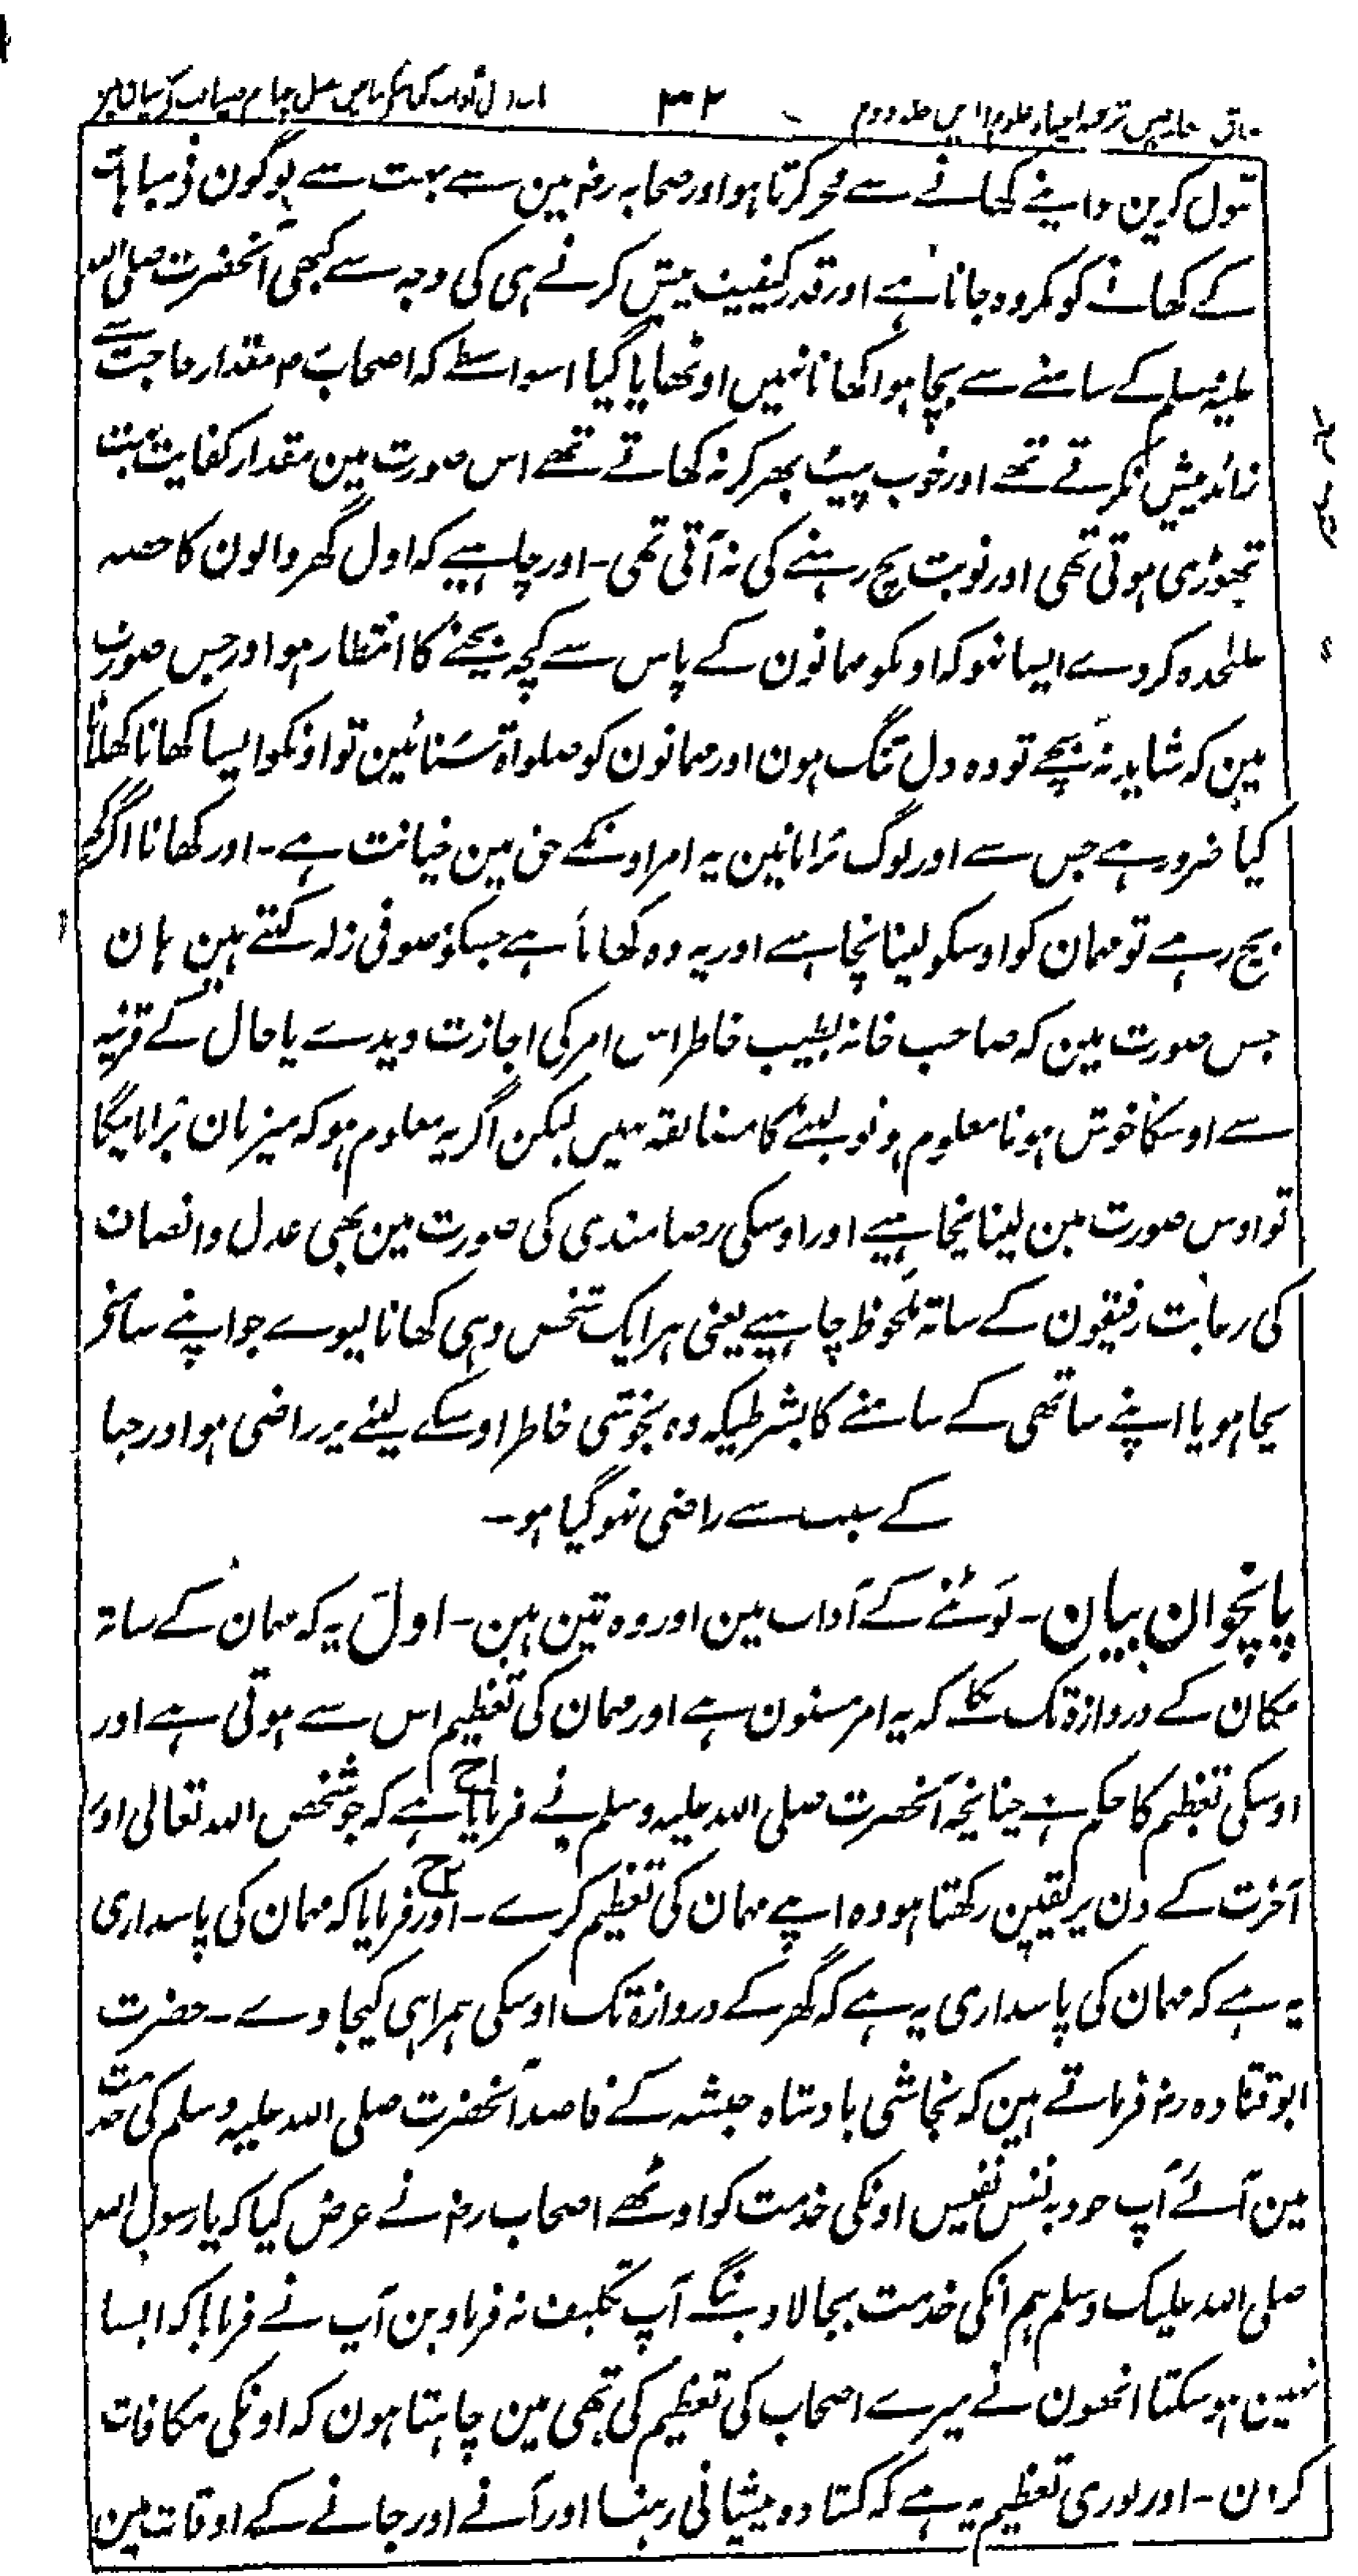 مذاق العارفین ترجمہ احیاء علوم الدین جلد دوم ۳۲
قبول کرین جو اپنے کھانے سے فخر کرتا ہو اور صحابہ رضہ مین سے بہت سے لوگون نے مباہات
کے کھانے کو مکروہ جانا ہے اور قدر کفایت پیش کرنے ہی کی وجہ سے کبھی آنحضرت صلی اللہ
علیہ وسلم کے سامنے سے بچا ہوا کھانا نہیں اوٹھایا گیا اسواسطے کہ اصحاب مقدار حاجت سے
زائد پیش نکرتے تھے اور خوب پیٹ بھر کر نہ کھاتے تھے اس صورت مین مقدار کفایت بہت
تھوڑی ہوتی تھی اور نوبت بچ رہنے کی نہ آتی تھی - اور چاہیے کہ اول گھر والون کا حصہ
علٰحدہ کردے ایسا نہو کہ اونکو مہمانون کے پاس سے کچہ بچنے کا انتظار ہو اور جس صورت
مین کہ شاید نہ بچے تو وہ دل تنگ ہون اور مہمانون کو صلواۃ سنائین تو اونکو ایسا کھانا کھلانا
کیا ضرور ہے جس سے اور لوگ بُرا مانین یہ امر اونکے حق مین خیانت ہے - اور کھانا اگر کچھ
بچ رہے تو مہمان کو اوسکو لینا نچاہے اور یہ وہ کھانا ہے جسکو صوفی زلہ کہتے ہین ہان
جس صورت مین کہ صاحب خانہ بطیب خاطر اس امر کی اجازت دیدے یا حال کے قرینہ
سے اوسکا خوش ہونا معلوم ہو تو لینے کا مضائقہ نہیں لیکن اگر یہ معلوم ہو کہ میزبان بُرا مانیگا
تو اوس صورت مین لینا نچاہیے اور اوسکی رضامندی کی صورت مین بھی عدل و انصاف
کی رعایت رفیقون کے ساتہ ملحوظ چاہیے یعنی ہر ایک شخص وہی کھانا لیوے جو اپنے سامنے
بچا ہو یا اپنے ساتھی کے سامنے کا بشرطیکہ وہ بخوشی خاطر اوسکے لینے پر راضی ہو اور حیا
کے سبب سے راضی نہو گیا ہو -
پانچوان بیان - لَوٹنے کے آداب مین اور وہ تین ہین - اول یہ کہ مہمان کے ساتہ
مکان کے دروازۃ تک نکلے کہ یہ امر مسنون ہے اور مہمان کی تعظیم اس سے ہوتی ہے اور
اوسکی تعظیم کا حکم ہے چنانچہ آنحضرت صلی اللہ علیہ وسلم نے فرمایا ہے کہ جو شخص اللہ تعالی اور
آخرت کے دن پر یقین رکھتا ہو وہ اپنے مہمان کی تعظیم کرے - اور فرمایا کہ مہمان کی پاسداری
یہ ہے کہ مہمان کی پاسداری یہ ہے کہ گھر کے دروازۃ تک اوسکی ہمراہی کیجاوے - حضرت
ابو قتادہ رضہ فرماتے ہین کہ نجاشی بادشاہ حبشہ کے قاصد آنحضرت صلی اللہ علیہ وسلم کی خدمت
مین آئے آپ خود بہ نفس نفیس اونکی خدمت کو اوٹھے اصحاب رضہ نے عرض کیا کہ یا رسول اللہ
صلی اللہ علیک وسلم ہم انکی خدمت بجا لاوینگے آپ تکلیف نہ فرماوین آپ نے فرمایا کہ ایسا
نہین ہو سکتا انھون نے میرے اصحاب کی تعظیم کی تھی مین چاہتا ہون کہ اونکی مکافات
کرون - اور پوری تعظیم یہ ہے کہ کشادہ پیشانی رہنا اور آنے اور جانے کے اوقات مین